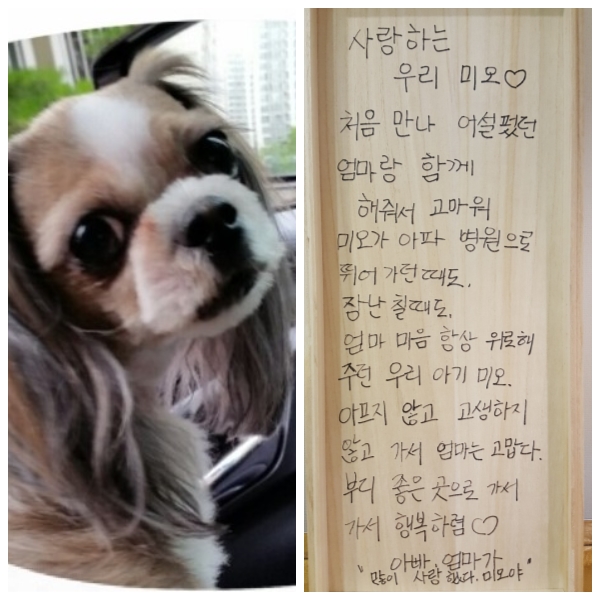 사랑하는
우리 미오♡
처음 만나 어설펐던
엄마랑 함께
해줘서 고마워
미오가 아파 병원으로
뛰어 가던때도.
잠난 칠때도.
엄마 마음 항상 위로해
주던 우리 아기 미오.
아프지 않고 고생하지
않고 가서 엄마는 고맙다.
부디 좋은 곳으로 가서
가서 행복하렴♡
아빠, 엄마가
"많이 사랑했다. 미오야"